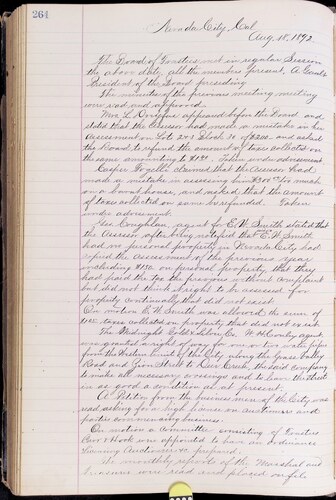 264
Nevada City, Cal
Aug. 18, 1892
The Board of Trustees met in regular Session
the above date, all the members present,
President of the Board presiding
The minutes of the previous meeting
were read and approved.
Mrs. L. appeared before the Board and
stated that the Assessor had made a mistake on her
Assessment on Lot Block and asked
the Board to refund the amount of taxes collected on
the same amounting to Taken under advisement
Casper claimed that the Assessor had
made a mistake in assessing him
on a burnt house, and asked that the amount
of taxes collected on same be refunded. Taken
under advisement.
Coughlan, agent for E. W. Smith stated that
the Assessor after being notified that E. W. Smith
had no personal property in Nevada City had
the assessment of the previous year
including on personal property, that they
had paid the tax the previous without complaint
but did not think it right to be assessed for
property continually that did not exist.
On motion E. W. Smith was allowed the sum of
taxes collected on property that did not exist.
The Midnight Gold Mining Co. agent
was granted a right of way for one or two water pipes
from the Western limits of the City along the Grass Valley
Road and Zion Street to Deer Creek, the said company
to make all necessary and to leave the Street
in as good a condition as at present.
A Petition from the business men of the City was
read, asking for a high license on Auctioneers and
parties business.
On motion a committee, consisting of Trustees
Carr & Hook were appointed to have an Ordinance
Auctioneers prepared.
The monthly reports of the Marshal and
were read and placed on file